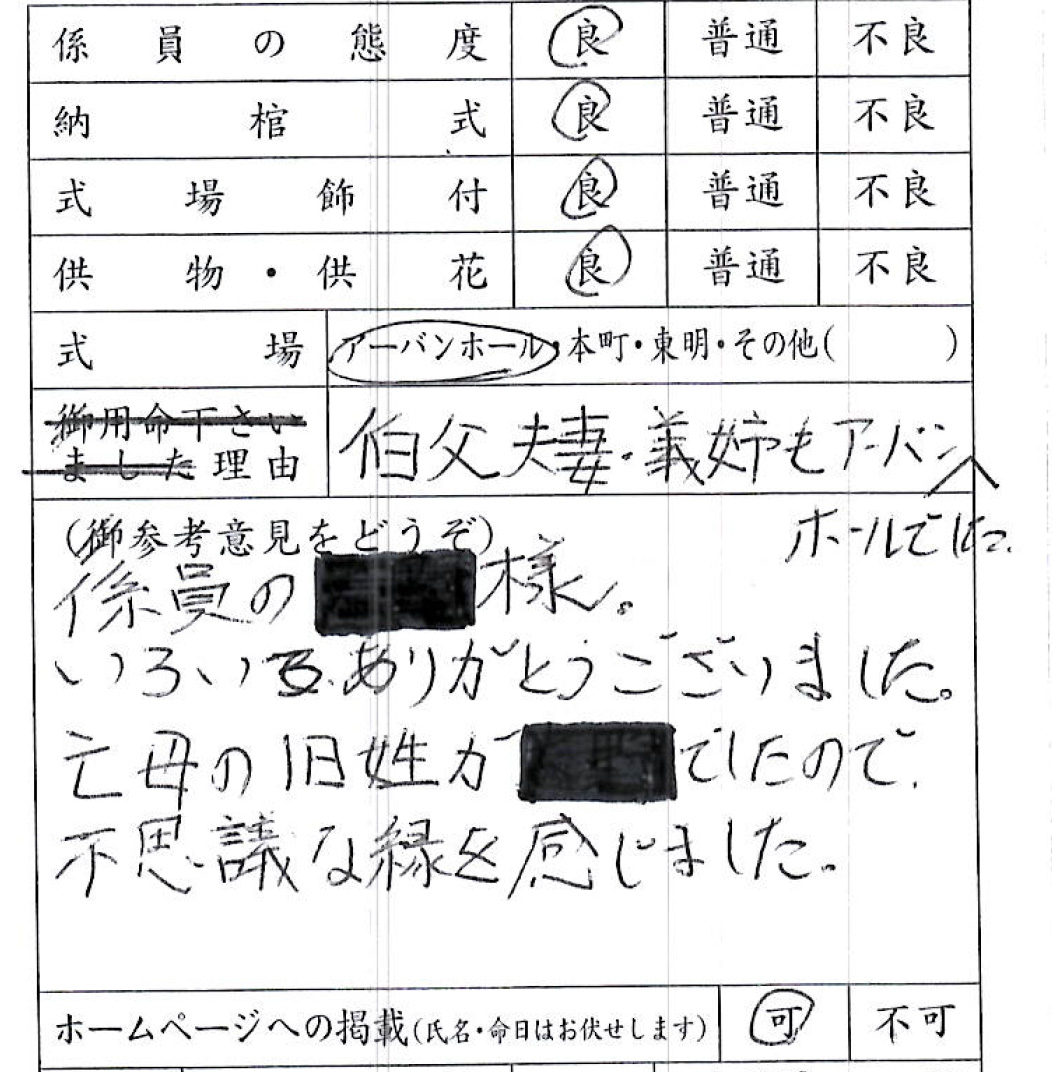 係員の態度 良 普通 不良
納棺式 良 普通 不良
式場飾付 良 普通 不良
供物・供花 良 普通 不良
式場 アーバンホール・本町・東明・その他( )
御用命下さい
ました理由
伯父夫妻・義姉もアーバン
ホールでした。
(御参考意見をどうぞ)
係員の 様。
いろいろありがとうございました。
亡母の旧姓が でしたので、
不思議な縁を感じました。
ホームページへの掲載(氏名・命日はお伏せします) 可 不可